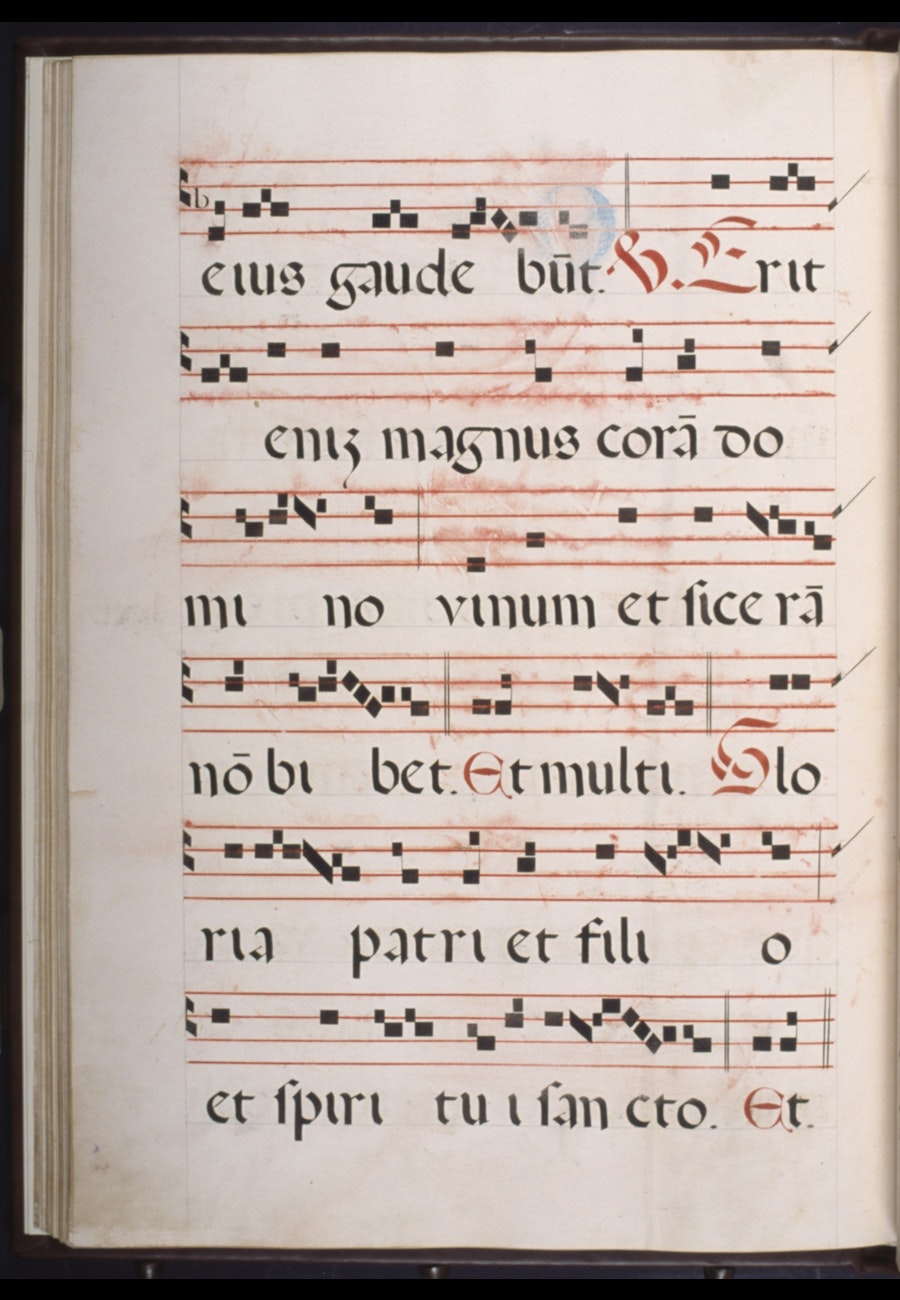 eius gaude būt. ℣. Erit
eniꝫ magnus corā do
mi no vinum et ſice rā
nō bi bet. Et multi. Glo
ria patri et fili o
et ſpiri tu i ſan cto. Et.